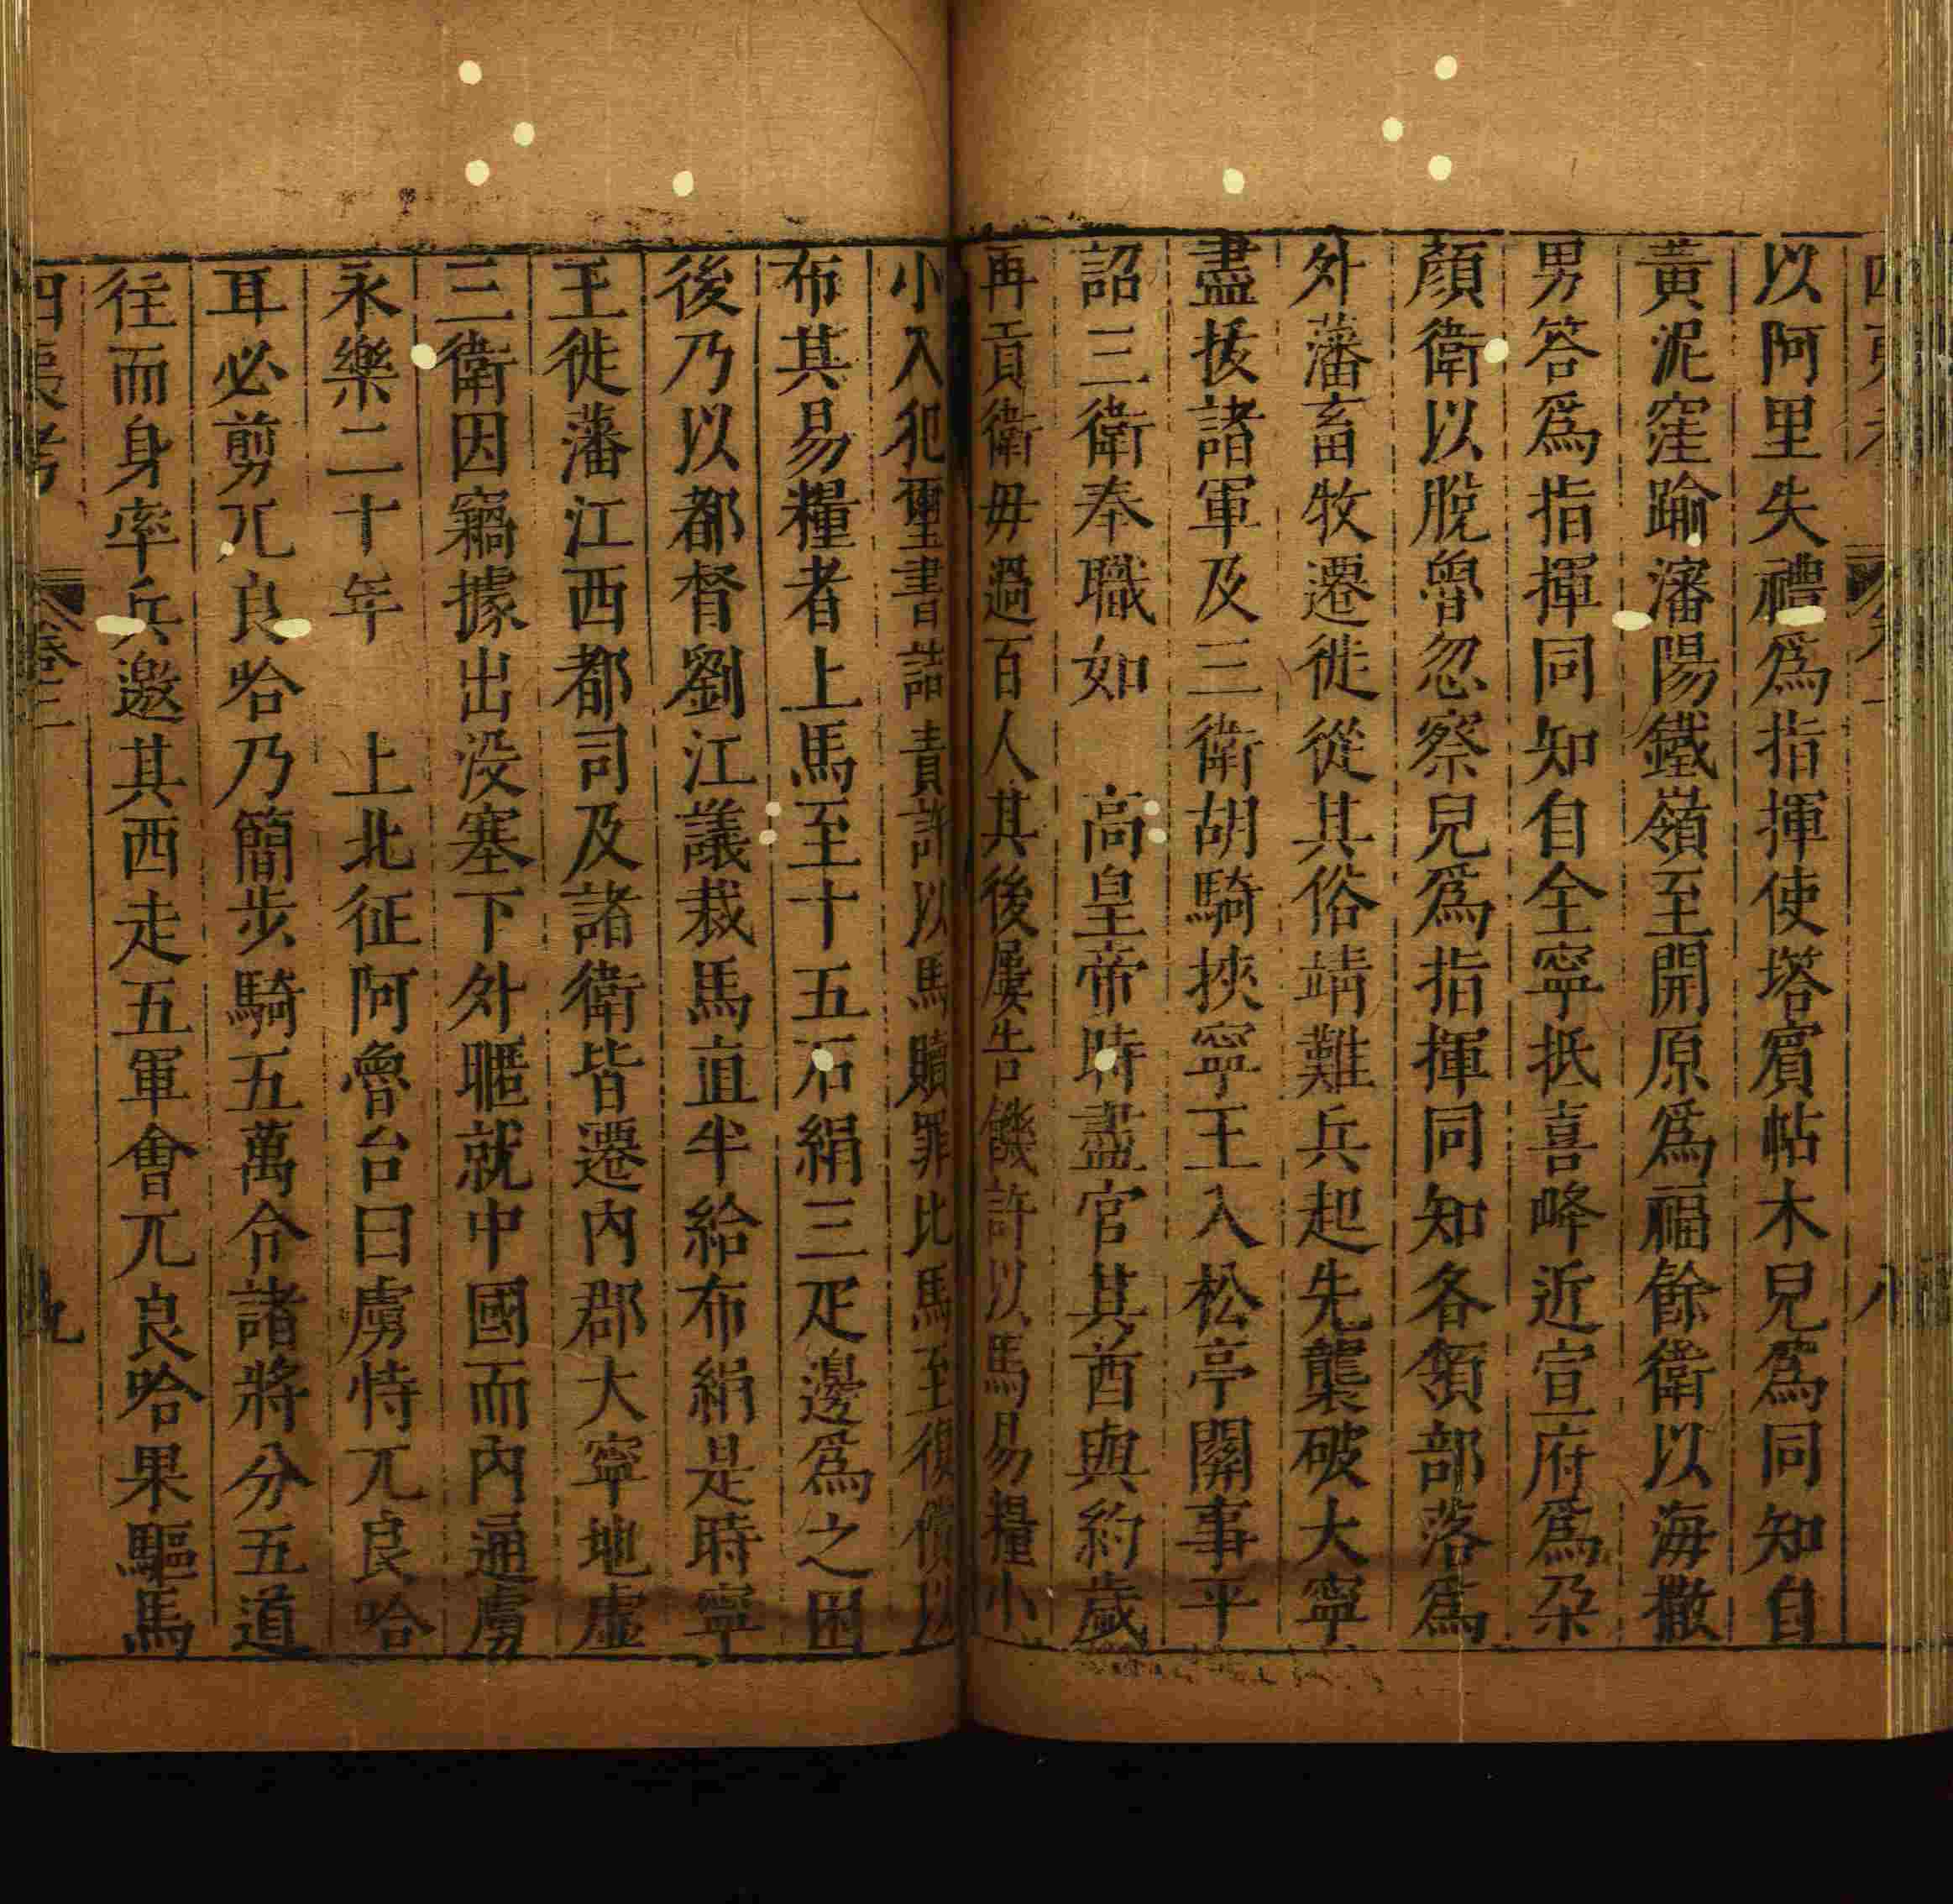 以阿里失禮爲指揮使塔賓帖木兒爲同知自
黃泥窪踰瀋陽鐵嶺至開原爲福餘衛以海撒
男答爲指揮同知自全寧抵喜峰近宣府爲朶
顏衛以脫魯忽察兒爲指揮同知各領部落爲
外藩畜牧遷徙從其俗靖難兵起先襲破大寧
盡拔諸軍及三衛胡騎挾寧王入松亭關事平
詔三衛奉職如　高皇帝時盡官其酋與約歲
再貢衛毋過百人其後屢告饑許以馬易糧小
小入犯璽書詰責許以馬贖罪比馬至復償以
布其易糧者上馬至十五石絹三疋邊爲之困
後乃以都督劉江議裁馬直半給布絹是時寧
王徙藩江西都司及諸衛皆遷內郡大寧地虛
三衛因竊據出沒塞下外䁥就中國而內通虜
永樂二十年　上北征阿魯台曰虜恃兀良哈
耳必剪兀良哈乃簡步騎五萬令諸將分五道
往而身率兵邀其西走五軍會兀良哈果驅馬
四夷考　卷三　九